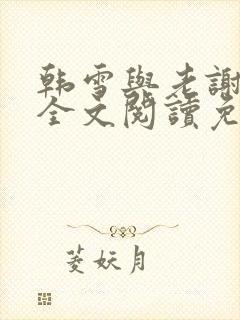 韩雪與老謝
全文閱讀免
菱妖月